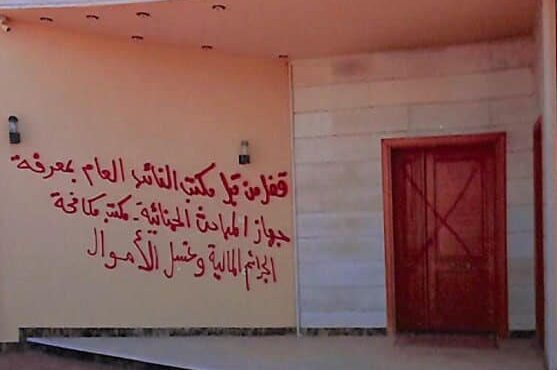 قفل من قبل مكتب القائد العام بمعرفة
جهاز المباحث الجنائية - مكتب مكافحة
الجرائم المالية وغسل الأموال